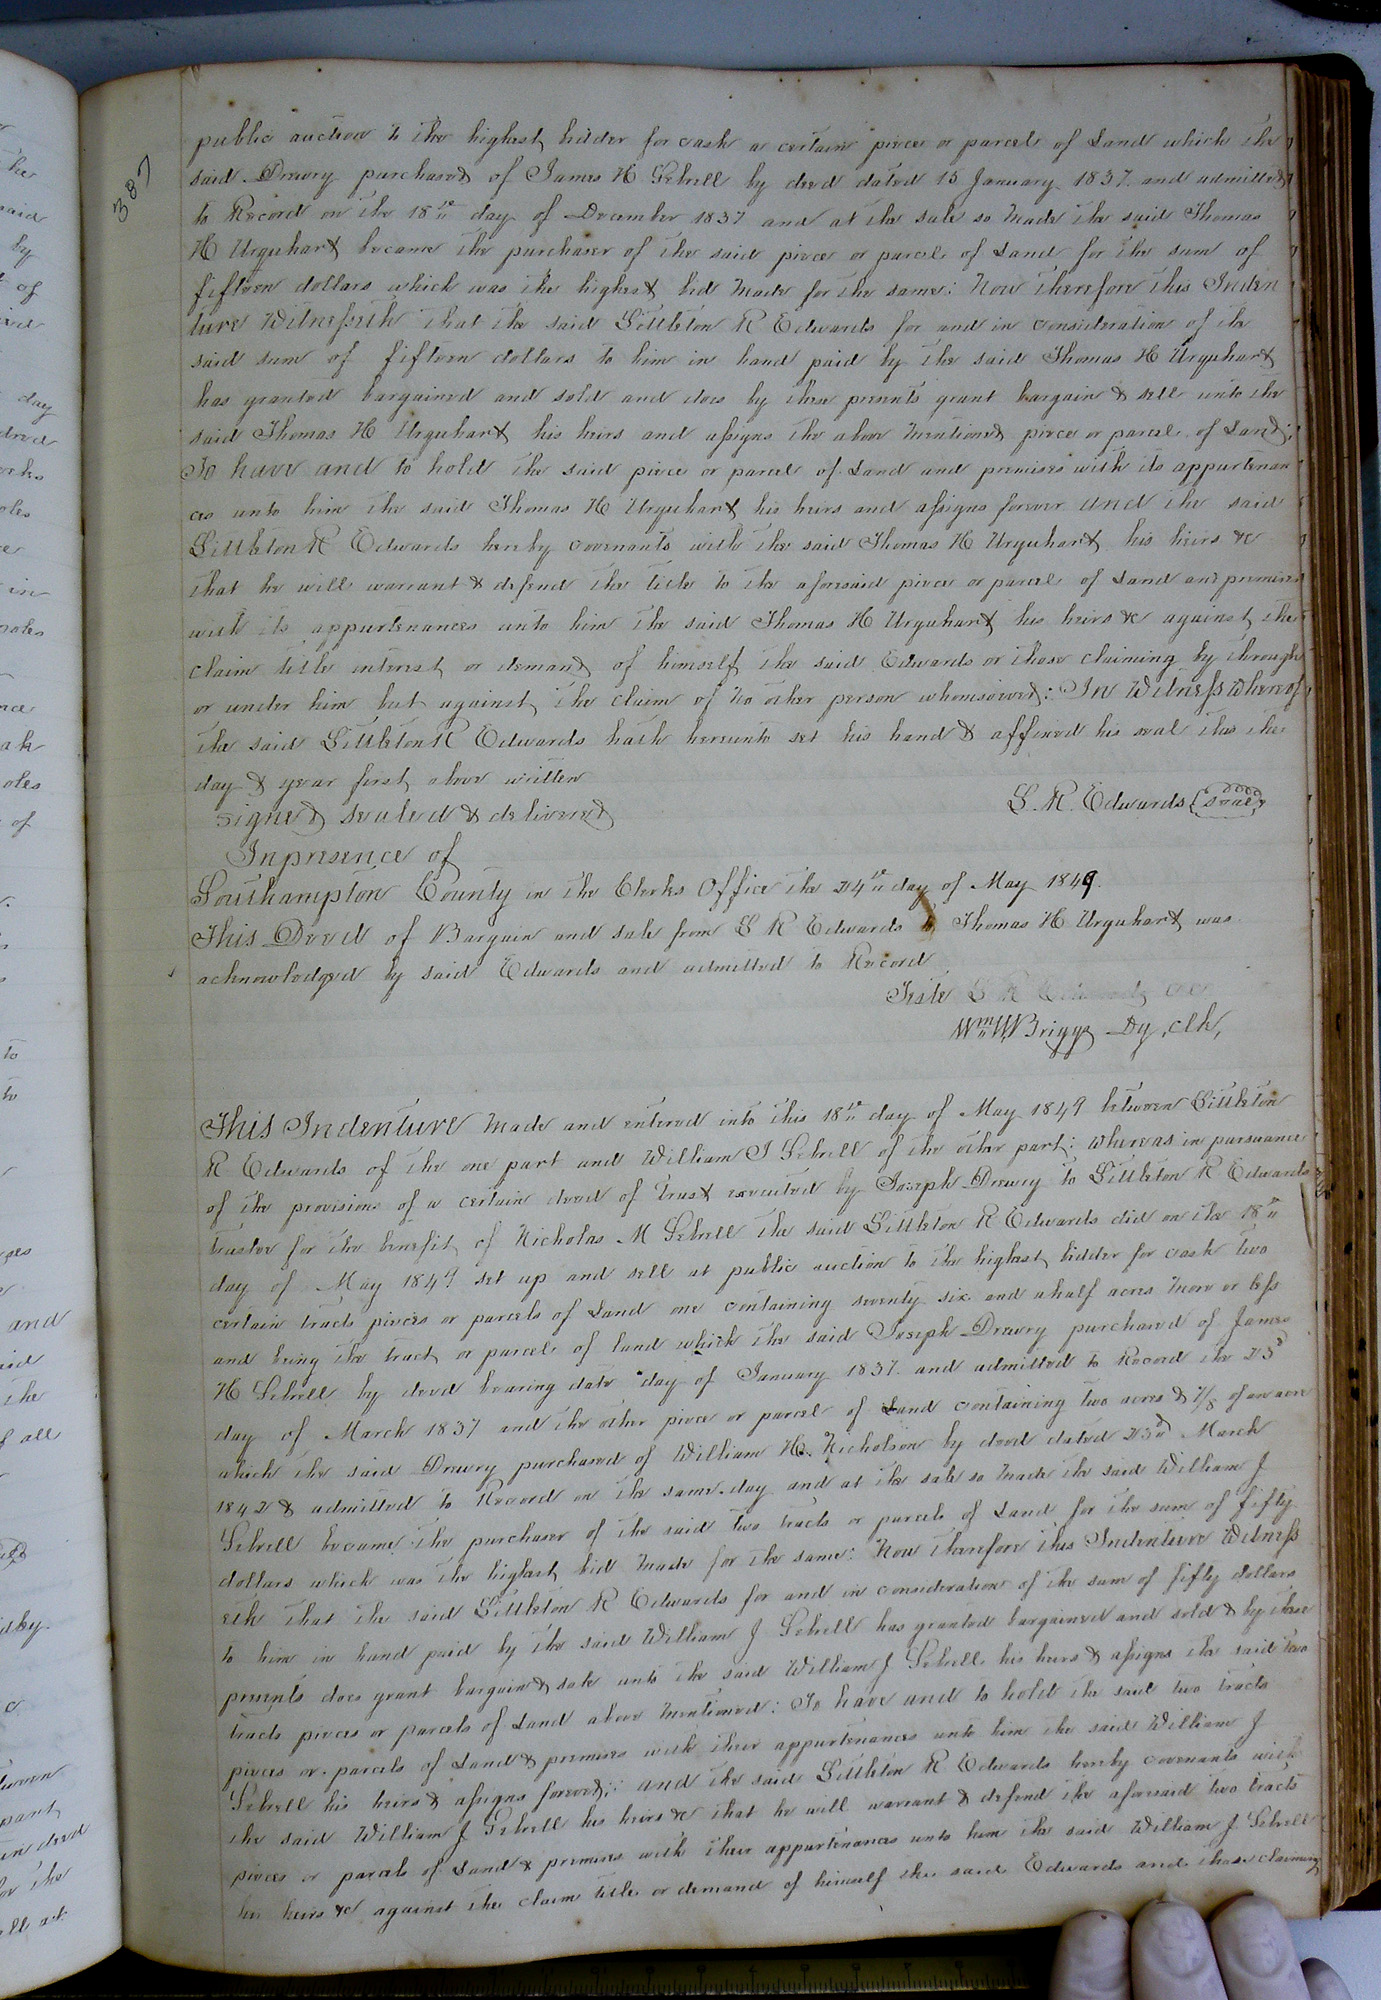 387
public auction to the highest bidder for cash a certain piece or parcel of Land which the
said Drewry purchased of James H Sebrell by deed dated 13 January 1837. and admitted
to Record on the 18th day of December 1837 and at the sale so made the said Thomas
H Urquhart became the purchaser of the said piece or parcel of Land for the sum of
fifteen dollars which was the highest bid made for the same: Now Therefore this Inden
ture Witnesseth that the said Littleton R Edwards for and in consideration of the
said sum of fifteen dollars to him in hand paid by the said Thomas H Urquhart
has granted bargained and sold and does by these presents grant bargain & sell unto the
said Thomas H Urquhart his heirs and assigns the above mentioned piece or parcel of Land;
To have and to hold the said piece or parcel of Land and premises with its appurtenan
ces unto him the said Thomas H Urquhart his heirs and assigns forever and the said
Littleton R Edwards hereby covenants with the said Thomas H Urquhart his heirs &c
that he will warrant & defend the title to the aforesaid piece or parcel of Land and premises
with its appurtenances unto him the said Thomas H Urquhart his heirs &c against the
claim title interest or demand of himself the said Edwards or those claiming by through
or under him but against the claim of no other person whomsoever: In Witness Whereof
the said Littleton R Edwards hath hereunto set his hand & affixed his seal this the
day & year first above written
L. R. Edwards {seal}
signed sealed & delivered
In presence of
Southampton County in the Clerks Office the 24th day of May 1849.
This Deed of Bargain and sale from L R Edwards to Thomas H Urquhart was
acknowledged by said Edwards and admitted to Record
Teste L R Edwards
Wm W Briggs Dy, Clk,
This Indenture Made and entered into this 18th day of May 1849 between Littleton
R Edwards of the one part and William J Sebrell of the other part: whereas in pursuance
of the provisions of a certain deed of Trust executed by Joseph Drewry to Littleton R Edwards
trustee for the benefit of Nicholas M Sebrell the said Littleton R Edwards did on the 18th
day of May 1849 set up and sell at public auction to the highest bidder for cash two
certain tracts pieces or parcels of Land one containing seventy six and a half acres more or less
and being the tract or parcel of land which the said Joseph Drewry purchased of James
H Sebrell by deed bearing date day of January 1837. and admitted to Record the 23d
day of March 1837 and the other piece or parcel of Land containing two acres & 7/8 of an acre
which the said Drewry purchased of William H. Nicholson by deed dated 23d March
1842 & admitted to Record on the same day and at the sale so made the said William J
Sebrell became the purchaser of the said two tracts or parcels of Land for the sum of fifty
dollars which was the highest bid made for the same: Now Therefore this Indenture Witness
eth that the said Littleton R Edwards for and in consideration of the sum of fifty dollars
to him in hand paid by the said William J Sebrell has granted bargained and sold & by these
presents does grant bargain & sale unto the said William J Sebrell his heirs & assigns the said two
tracts pieces or parcels of Land above mentioned: To have and to hold the said two tracts
pieces or parcels of Land & premises with their appurtenances unto him the said William J
Sebrell his heirs & assigns forever; and the said Littleton R Edwards hereby covenants with
the said William J Sebrell his heirs &c that he will warrant & defend the aforesaid two tracts
pieces or parcels of Land & premises with their appurtenances unto him the said William J Sebrell
his heirs &c against the claim title or demand of himself the said Edwards and those claiming